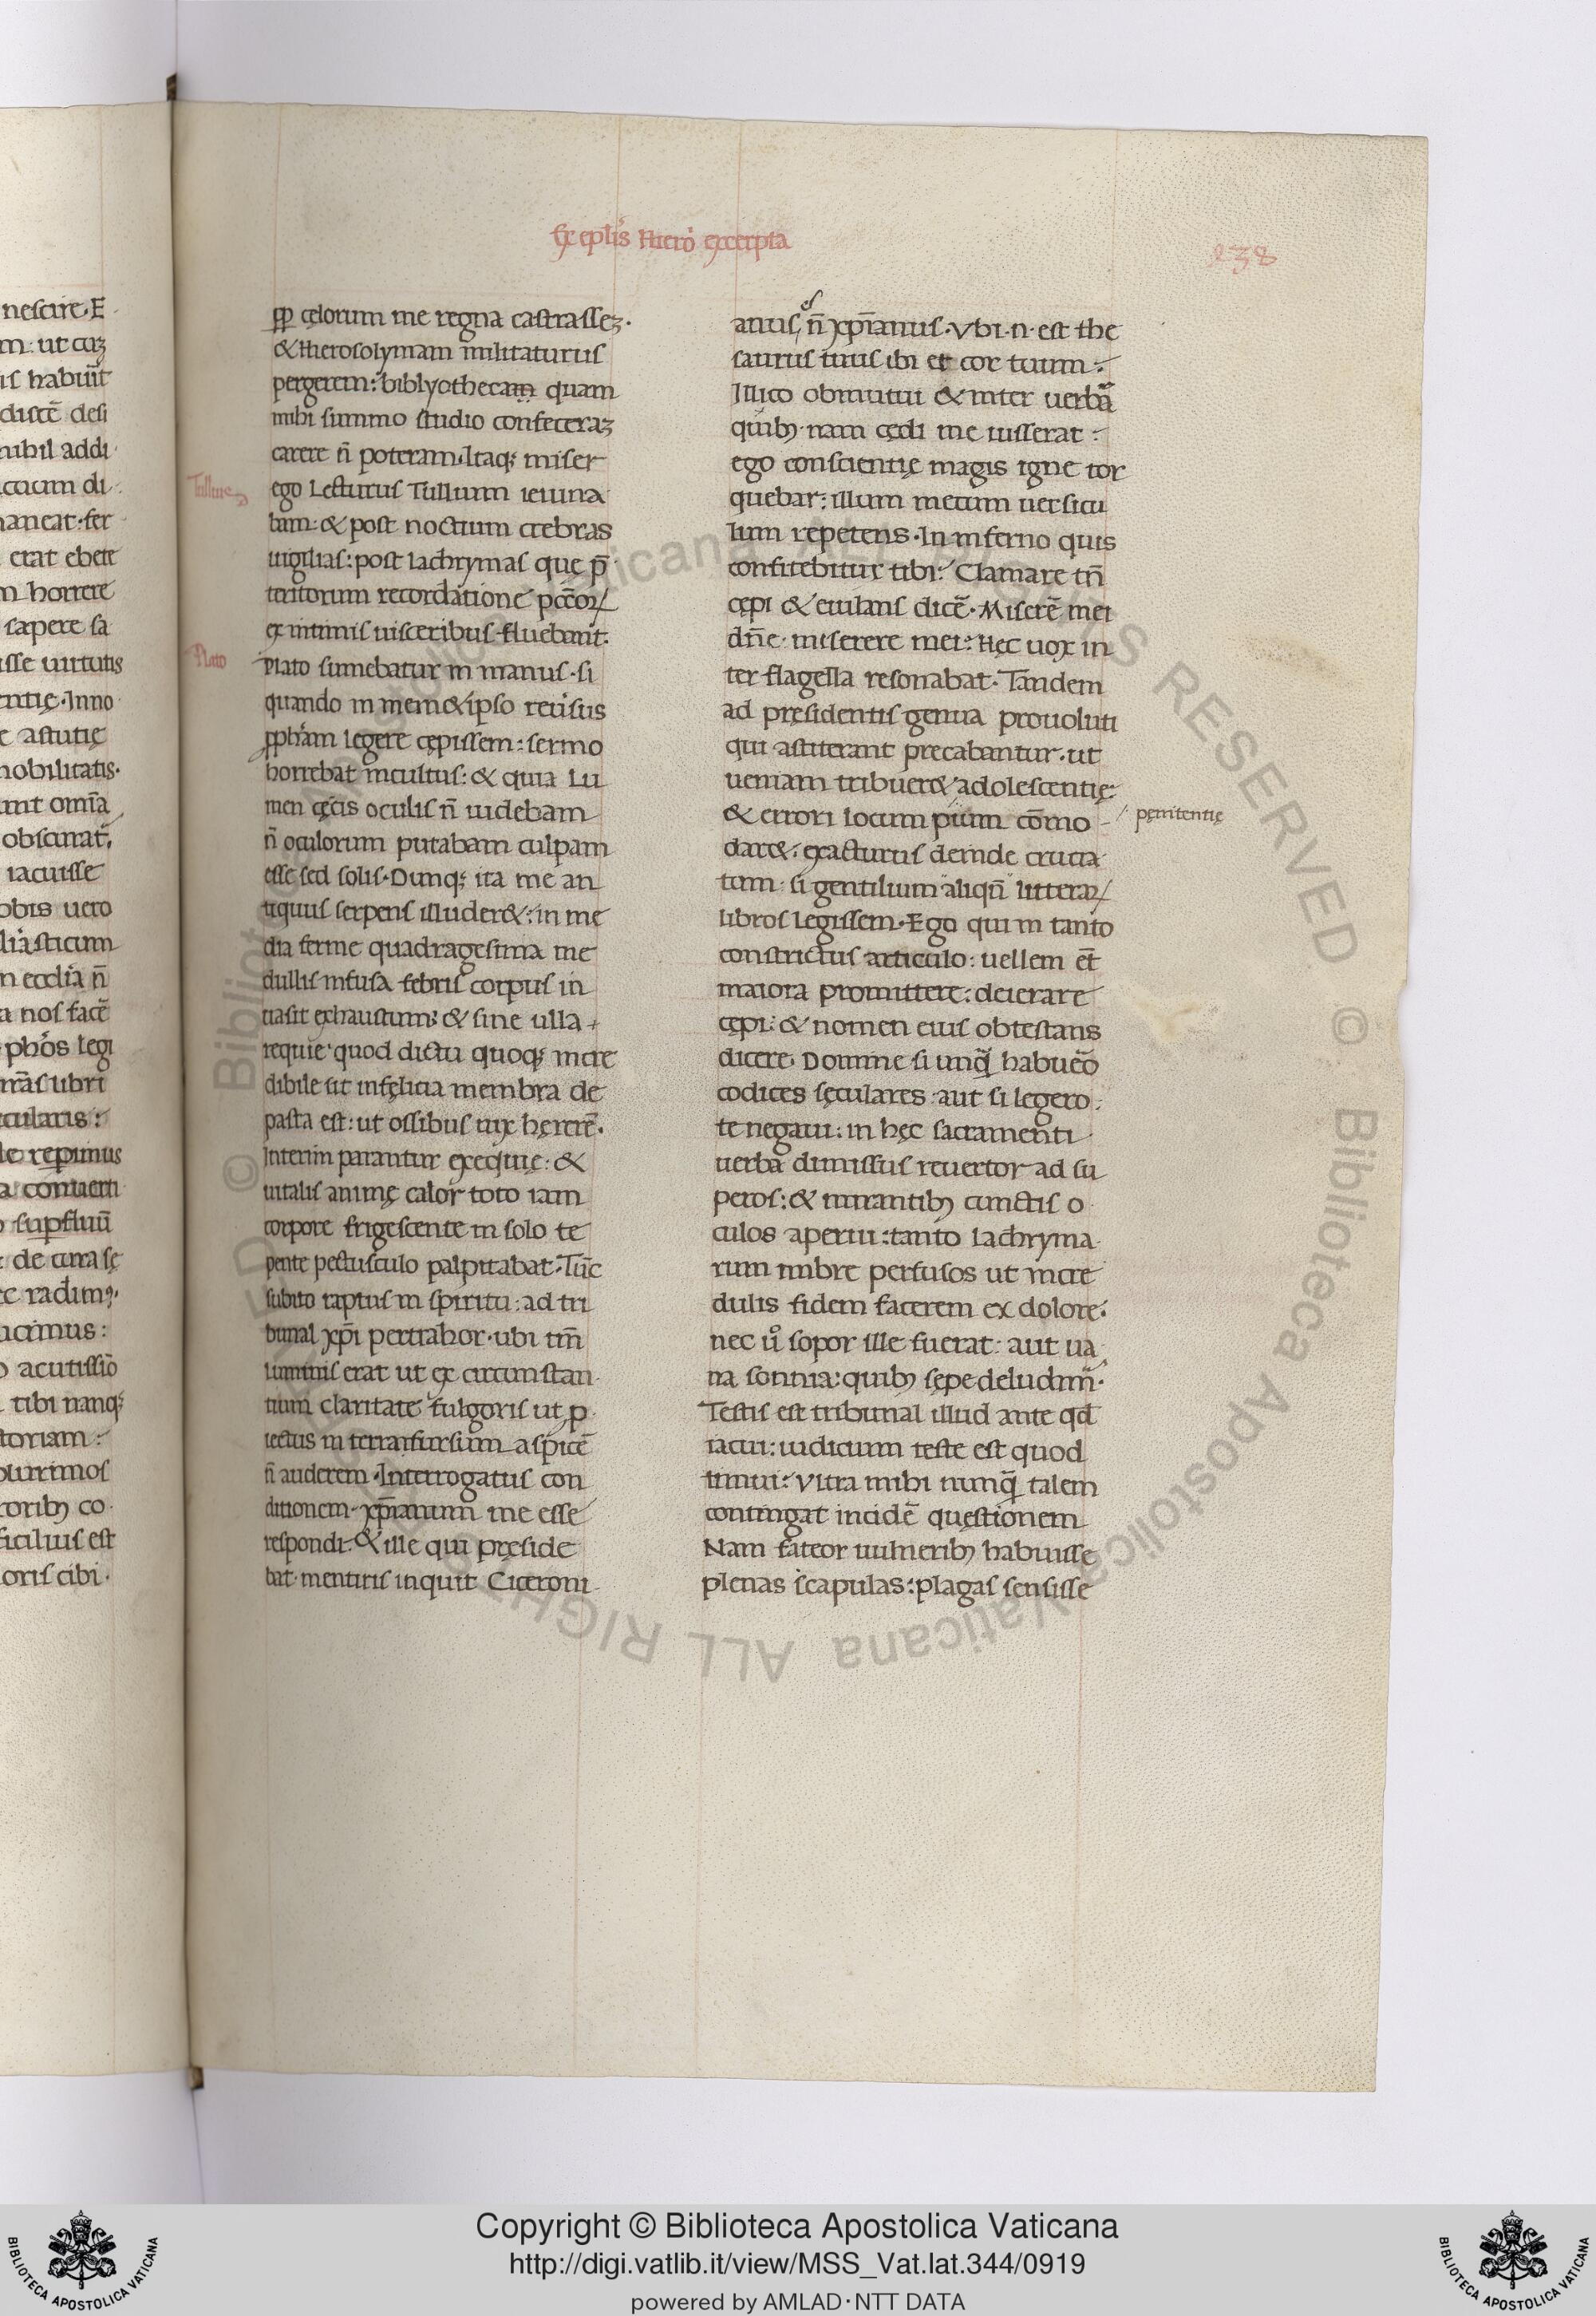 nescire. E
m: ut cuȝ
is habuīt
discē desi
nihil addi
ctum di
maneat: fer
erat ebete
m horrere
sapere sa
isse uirtutis
entię. Inno
e astutię
nobilitatis.
unt omīa
obscurat
iacuisse
obis uero
liasticum
n ecclia n̄
a nos facē
phōs legi
mās ubri
ecularis:
le repimus
a conuerti
supfluū
de cura sę
ec radimꝰ.
ucimus:
acutissīo
tibi nanqꝫ
toriam:
plurimos
toribꝫ co
ficilius est
oris cibi.
Ex eplis Hiero excerpta
238
ꝓp cęlorum me regna castrasseȝ.
& Hierosolymam militaturus
pergerem: biblyothecam quam
mihi summo studio confeceraȝ
carere n̄ poteram. Itaqꝫ miser
ego Lecturus Tullium ieiuna
bam: & post noctium crebras
uigilias: post lachrymas que p̄
teritorum recordatione pccōꝝ
ex intimis uisceribus fluebant.
Plato sumebatur in manus. si
quando in mem& ipso reuisus
ꝓpham legere cępissem: sermo
horrebat incultus: & quia Lu
men cęcis oculis n̄ uidebam
n̄ oculorum putabam culpam
esse sed solis. Dumqꝫ ita me an
tiquus serpens illuder&: in me
dia ferme quadragesima me
dullis infusa febris corpus in
uasit exhaustum: & sine ulla
requie quod dictu quoqꝫ incre
dibile sit infęlicia membra de
pasta est: ut ossibus uix hęrerē.
Interim parantur exequię: &
uitalis animę calor toto iam
corpore frigescente in solo te
pente pectusculo palpitabat. Tūc
subito raptus in spiritu: ad tri
bunal xp̄i pertrahor. ubi tm̄
luminis erat ut ex circumstan
tium claritate fulgoris ut ꝓ
iectus in terram sursum aspicē
n̄ auderem. Interrogatus con
ditionem. xp̄ianum me esse
respondi. & ille qui pręside
bat. mentiris inquit Ciceroni
Tullius
Plato
es
anus, n̄ xp̄ianus. Vbi. n. est the
saurus tuus ibi et cor tuum:
Illico obmutui & inter uerba
quibꝫ nam cędi me iusserat:
ego conscientię magis igne tor
quebar: illum mecum uersicu
lum repetens. In inferno quis
confitebitur tibi: Clamare tn̄
cępi & eiulans dicē. Miserē mei
dn̄e miserere mei: Hęc uox in
ter flagella resonabat. Tandem
ad pręsidentis genua prouoluti
qui astiterant precabantur. ut
ueniam tribuer& adolescentię:
& errori locum pium cōmo
dar&: exacturus deinde crucia
tum: si gentilium aliqn̄ litteraꝝ
libros legissem. Ego qui in tanto
constrictus articulo: uellem ēt
maiora promittere: deierare
cępi: & nomen eius obtestans
dicere. Domine si unq̄ habuēo
codices sęculares: aut si legero:
te negaui: in hęc sacramenti
uerba dimissus reuertor ad su
peros: & mirantibꝫ cunctis o
culos aperui: tanto lachryma
rum imbre perfusos ut incre
dulis fidem facerem ex dolore:
nec uͦ sopor ille fuerat: aut ua
na somnia: quibꝫ sępe deludim̄.
Testis est tribunal illud ante qd̄
iacui: iudicium teste est quod
timui: Vltra mihi nunq̄ talem
contingat incidē questionem
Nam fateor uulneribꝫ habuisse
plenas scapulas: plagas sensisse
penitentię
© Biblioteca Apostolica Vaticana ALL RIGHTS RESERVED © Biblioteca Apostolica Vaticana ALL RIGHTS RESERVED
Copyright © Biblioteca Apostolica Vaticana
http://digi.vatlib.it/view/MSS_Vat.lat.344/0919
powered by AMLAD·NTT DATA
BIBLIOTECA APOSTOLICA VATICANA
BIBLIOTECA APOSTOLICA VATICANA